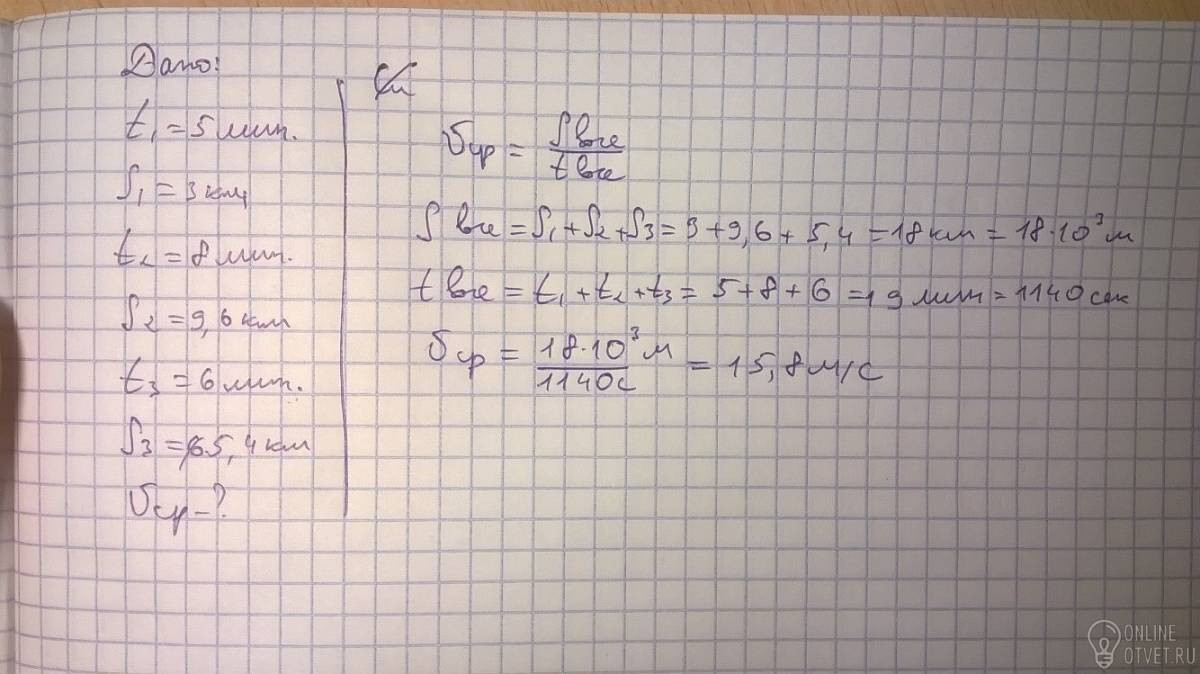 Дано:
t₁ = 5 мин.
S₁ = 3 км
t₂ = 8 мин.
S₂ = 9,6 км
t₃ = 6 мин.
S₃ = 5,4 км
υср - ?
υср = Sвсе / tвсе
S все = S₁ + S₂ + S₃ = 3 + 9,6 + 5,4 = 18 км = 18·10³ м
t все = t₁ + t₂ + t₃ = 5 + 8 + 6 = 19 мин = 1140 сек
υср = 18·10³ м / 1140 с = 15,8 м/с
ONLINE
OTVET.RU